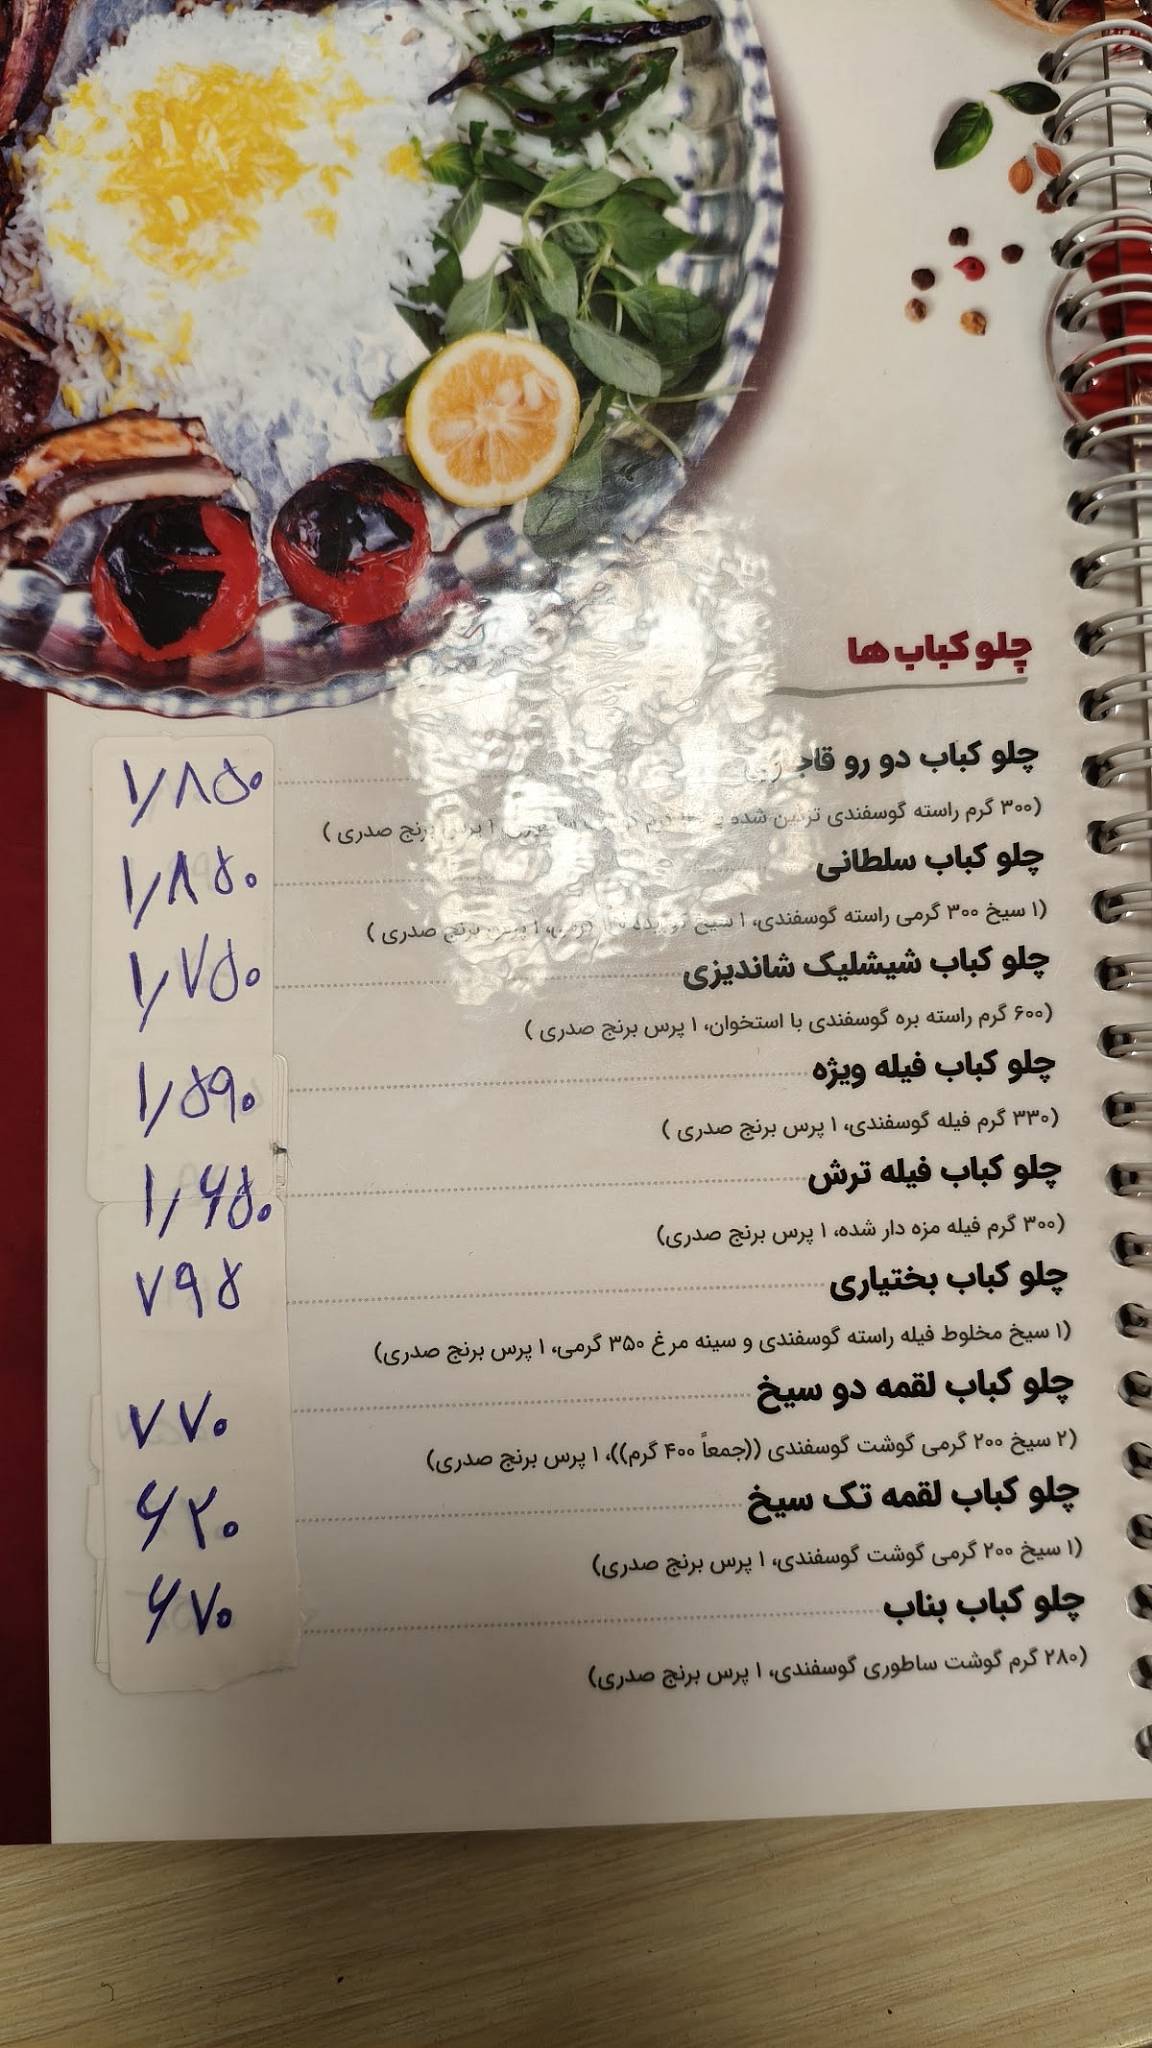 چلو کباب ها
چلو کباب دو رو قاجاری ۱/۸۵۰
(۳۰۰ گرم راسته گوسفندی تزئین شده با گرم ۱ پرس برنج صدری )
چلو کباب سلطانی ۱/۸۵۰
(۱ سیخ ۳۰۰ گرمی راسته گوسفندی، ۱ سیخ کوبیده گرمی، ۱ پرس برنج صدری )
چلو کباب شیشلیک شاندیزی ۱/۷۵۰
(۶۰۰ گرم راسته بره گوسفندی با استخوان، ۱ پرس برنج صدری )
چلو کباب فیله ویژه ۱/۵۹۰
(۳۳۰ گرم فیله گوسفندی، ۱ پرس برنج صدری )
چلو کباب فیله ترش ۱/۶۵۰
(۳۰۰ گرم فیله مزه دار شده، ۱ پرس برنج صدری)
چلو کباب بختیاری ۷۹۵
(۱ سیخ مخلوط فیله راسته گوسفندی و سینه مرغ ۳۵۰ گرمی، ۱ پرس برنج صدری)
چلو کباب لقمه دو سیخ ۷۷۰
(۲ سیخ ۲۰۰ گرمی گوشت گوسفندی ((جمعاً ۴۰۰ گرم))، ۱ پرس برنج صدری)
چلو کباب لقمه تک سیخ ۶۲۰
(۱ سیخ ۲۰۰ گرمی گوشت گوسفندی، ۱ پرس برنج صدری)
چلو کباب بناب ۶۷۰
(۲۸۰ گرم گوشت ساطوری گوسفندی، ۱ پرس برنج صدری)